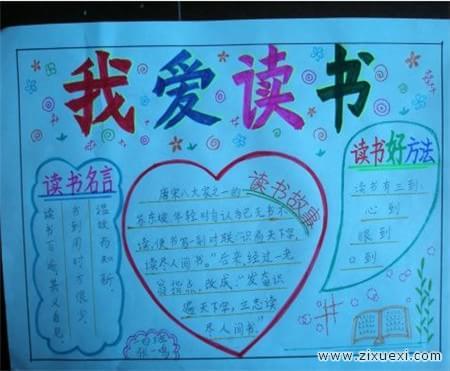 我爱读书
读书名言
温故而知新。
书到用时方恨少。
读书百遍,其义自见。
读书故事
唐宋八大家之一的
苏东坡年轻时自认为己无书不
读,便书写一副对联:“识遍天下字,
读尽人间书。”后来经过一老
翁指点,改成:“发奋识
遍天下字,立志读
尽人间书。”
读书好方法
读书有三到:
心到
眼到
口到
张一鸣
www.zixuexi.com